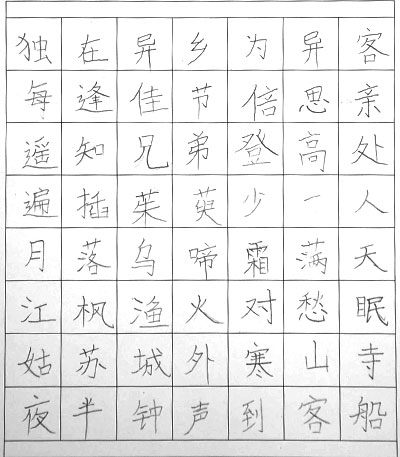 独在异乡为异客
每逢佳节倍思亲
遥知兄弟登高处
遍插茱萸少一人
月落乌啼霜满天
江枫渔火对愁眠
姑苏城外寒山寺
夜半钟声到客船